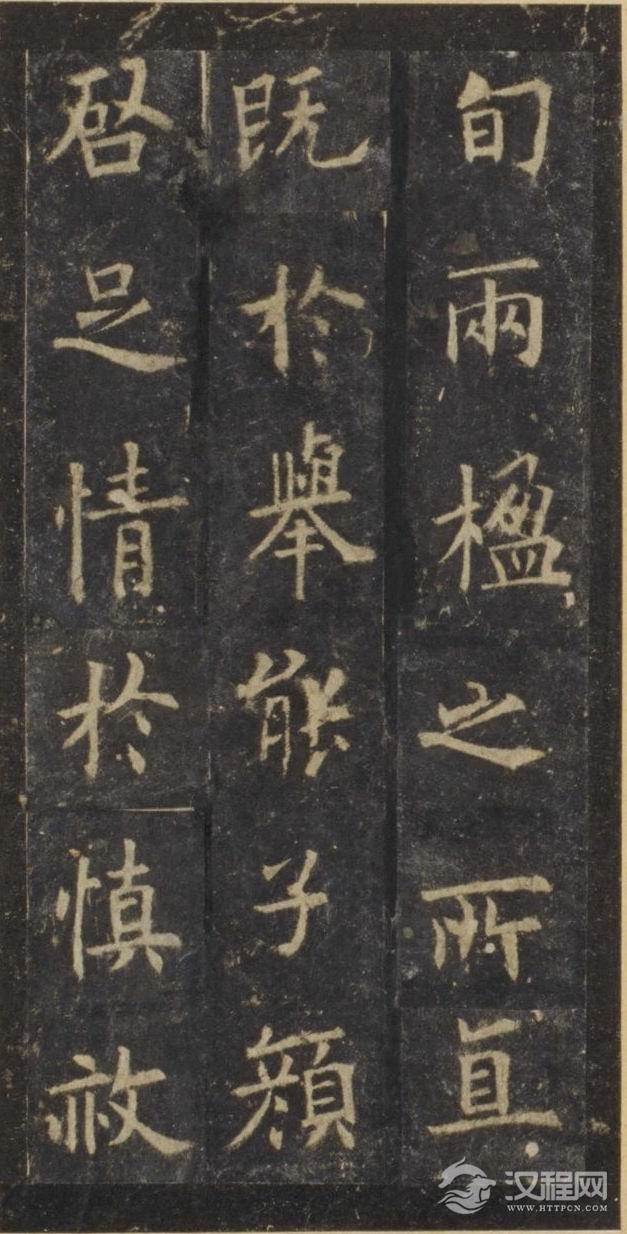 旬兩楹之所直
既於舉能子顏
啓足情於慎赦
汉程网
WWW.HTTPCN.COM